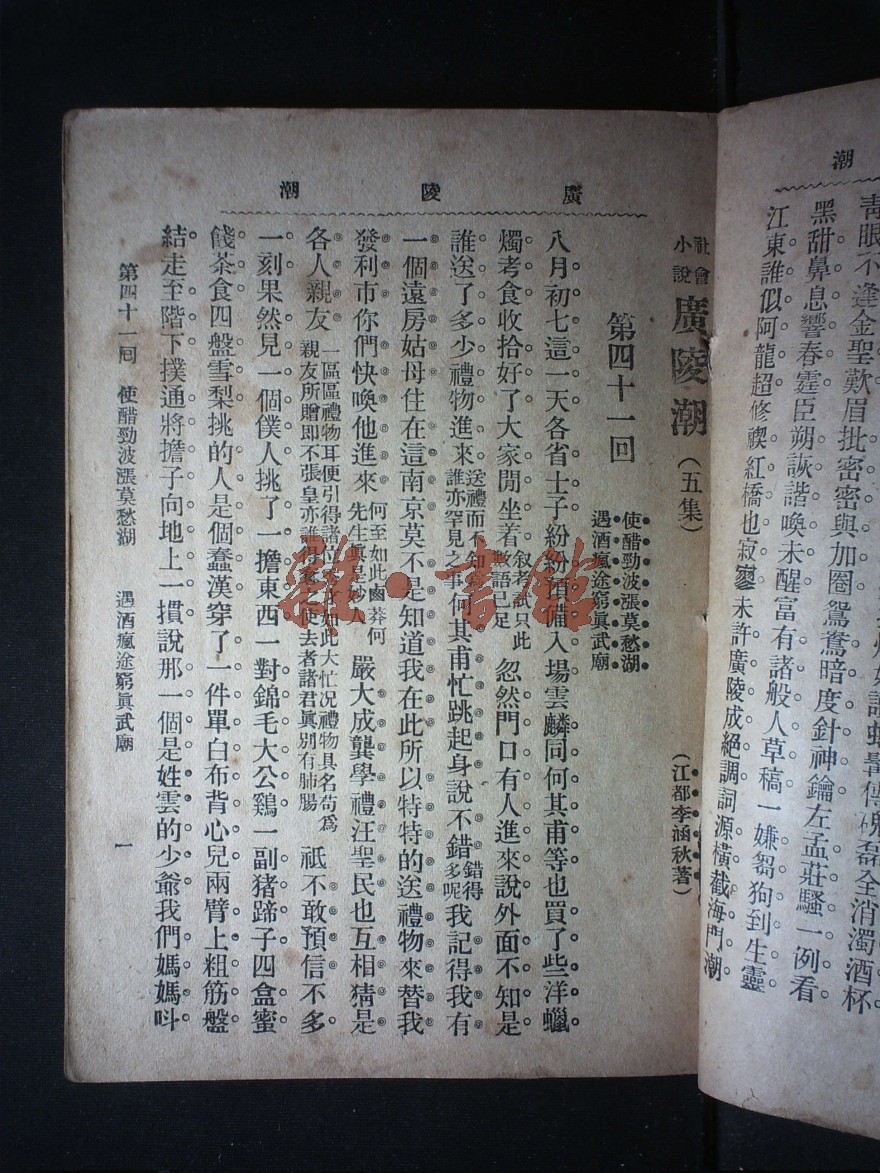 潮
青眼不逢金聖歎眉批密密與加圈鴛鴦暗度針神鑰左孟莊騷一例看
黑甜鼻息響春霆臣朔詼諧喚未醒富有諸般人草稿一嫌芻狗到生靈
江東誰似阿龍超修禊紅橋也寂寥未許廣陵成絕調詞源橫截海門潮
廣陵潮
社會小說 廣陵潮 (五集) (江都李涵秋著)
第四十一回 使醋勁波漲莫愁湖 遇酒瘋途窮眞武廟
八月初七這一天各省士子紛紛預備入場雲麟同何其甫等也買了些洋蠟
燭考食收拾好了大家閒坐着叙考試只此數語已足忽然門口有人進來說外面不知是
誰送了多少禮物進來送禮而不誰亦罕見之事何其甫忙跳起身說不錯錯得多呢我記得我有
一個遠房姑母住在這南京莫不是知道我在此所以特特的送禮物來替我
發利市你們快喚他進來何至如此鹵莽何先生眞是妙人嚴大成龔學禮汪聖民也互相猜是
各人親友一區區禮物耳便引得諸位如此大忙况禮物具名苟爲親友所贈卽不張皇亦使去者諸君眞別有肺腸祇不敢預信不多
一刻果然見一個僕人挑了一擔東西一對錦毛大公鷄一副猪蹄子四盒蜜
餞茶食四盤雪梨挑的人是個蠢漢穿了一件單白布背心兒兩臂上粗筋盤
結走至階下撲通將擔子向地上一摜說那一個是姓雲的少爺我們媽媽呌
第四十一回 使醋勁波漲莫愁湖 遇酒瘋途窮眞武廟 一
雜·書館